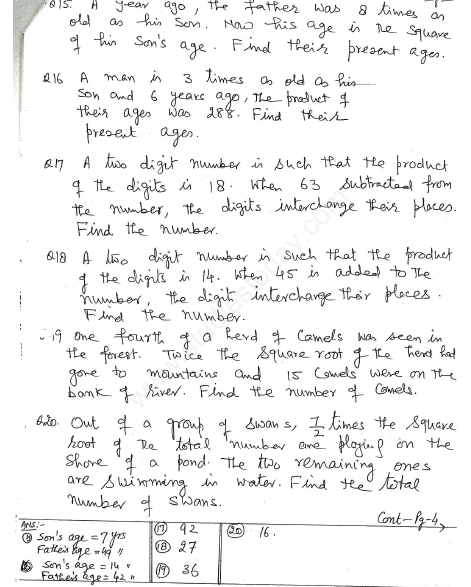 Q15. A year ago, the father was 8 times as
old as his Son. Now his age is the Square
of his Son's age. Find their present ages.
Q16 A man is 3 times as old as his
Son and 6 years ago, the product of
their ages was 288. Find their
present ages.
Q17 A two digit number is such that the product
of the digits is 18. When 63 Subtracted from
the number, the digits interchange their places.
Find the number.
Q18 A two digit number is such that the product
of the digits is 14. When 45 is added to the
number, the digit interchange their places.
Find the number.
19 One fourth of a herd of Camels was seen in
the forest. Twice the Square root of the herd had
gone to mountains and 15 Camels were on the
bank of River. Find the number of Camels.
Q20. Out of a group of Swans, 7/2 times the Square
root of the total number are playing on the
Shore of a pond. The two remaining ones
are Swimming in water. Find the total
number of swans.
Cont-Pg-4,
Ans:-
(15) Son's age = 7 yrs
Father's age = 49 "
(16) Son's age = 14 "
Father's age = 42 "
(17) 92
(18) 27
(19) 36
(20) 16.